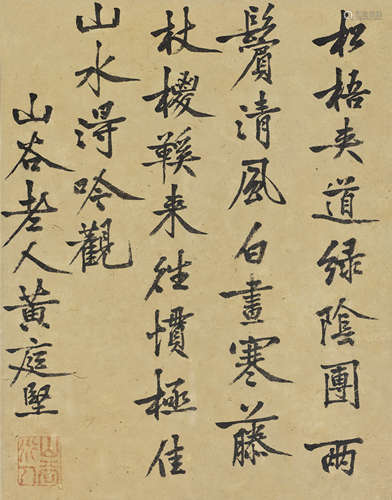 松梧夾道綠陰團兩
鬢清風白晝寒藤
杖椶鞵来往慣極佳
山水得吟觀
山谷老人黃庭堅